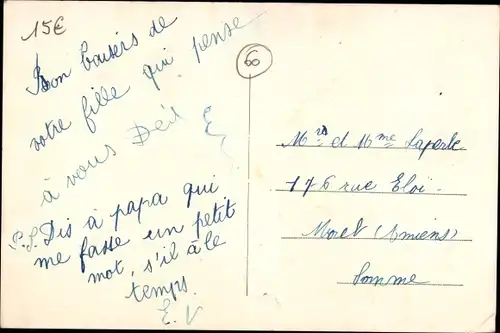 15€
60
Bon baisers de
votre fille qui pense
à vous
E
P.S. Dis à papa qui
me fasse un petit
mot, s'il à le
temps.
E. V
Mrs et Mme Laperle
176 rue Eloi
Morel (Amiens)
Somme